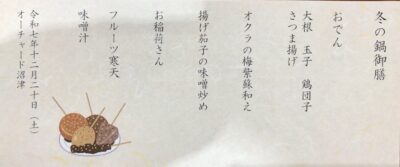 冬の鍋御膳
おでん
大根　玉子　鶏団子
さつま揚げ
オクラの梅紫蘇和え
揚げ茄子の味噌炒め
お稲荷さん
フルーツ寒天
味噌汁
令和七年十二月二十日（土）
オーチャード沼津